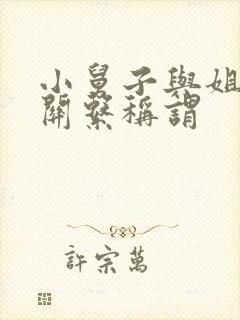 小舅子與姐
關繫稱謂
許宗萬